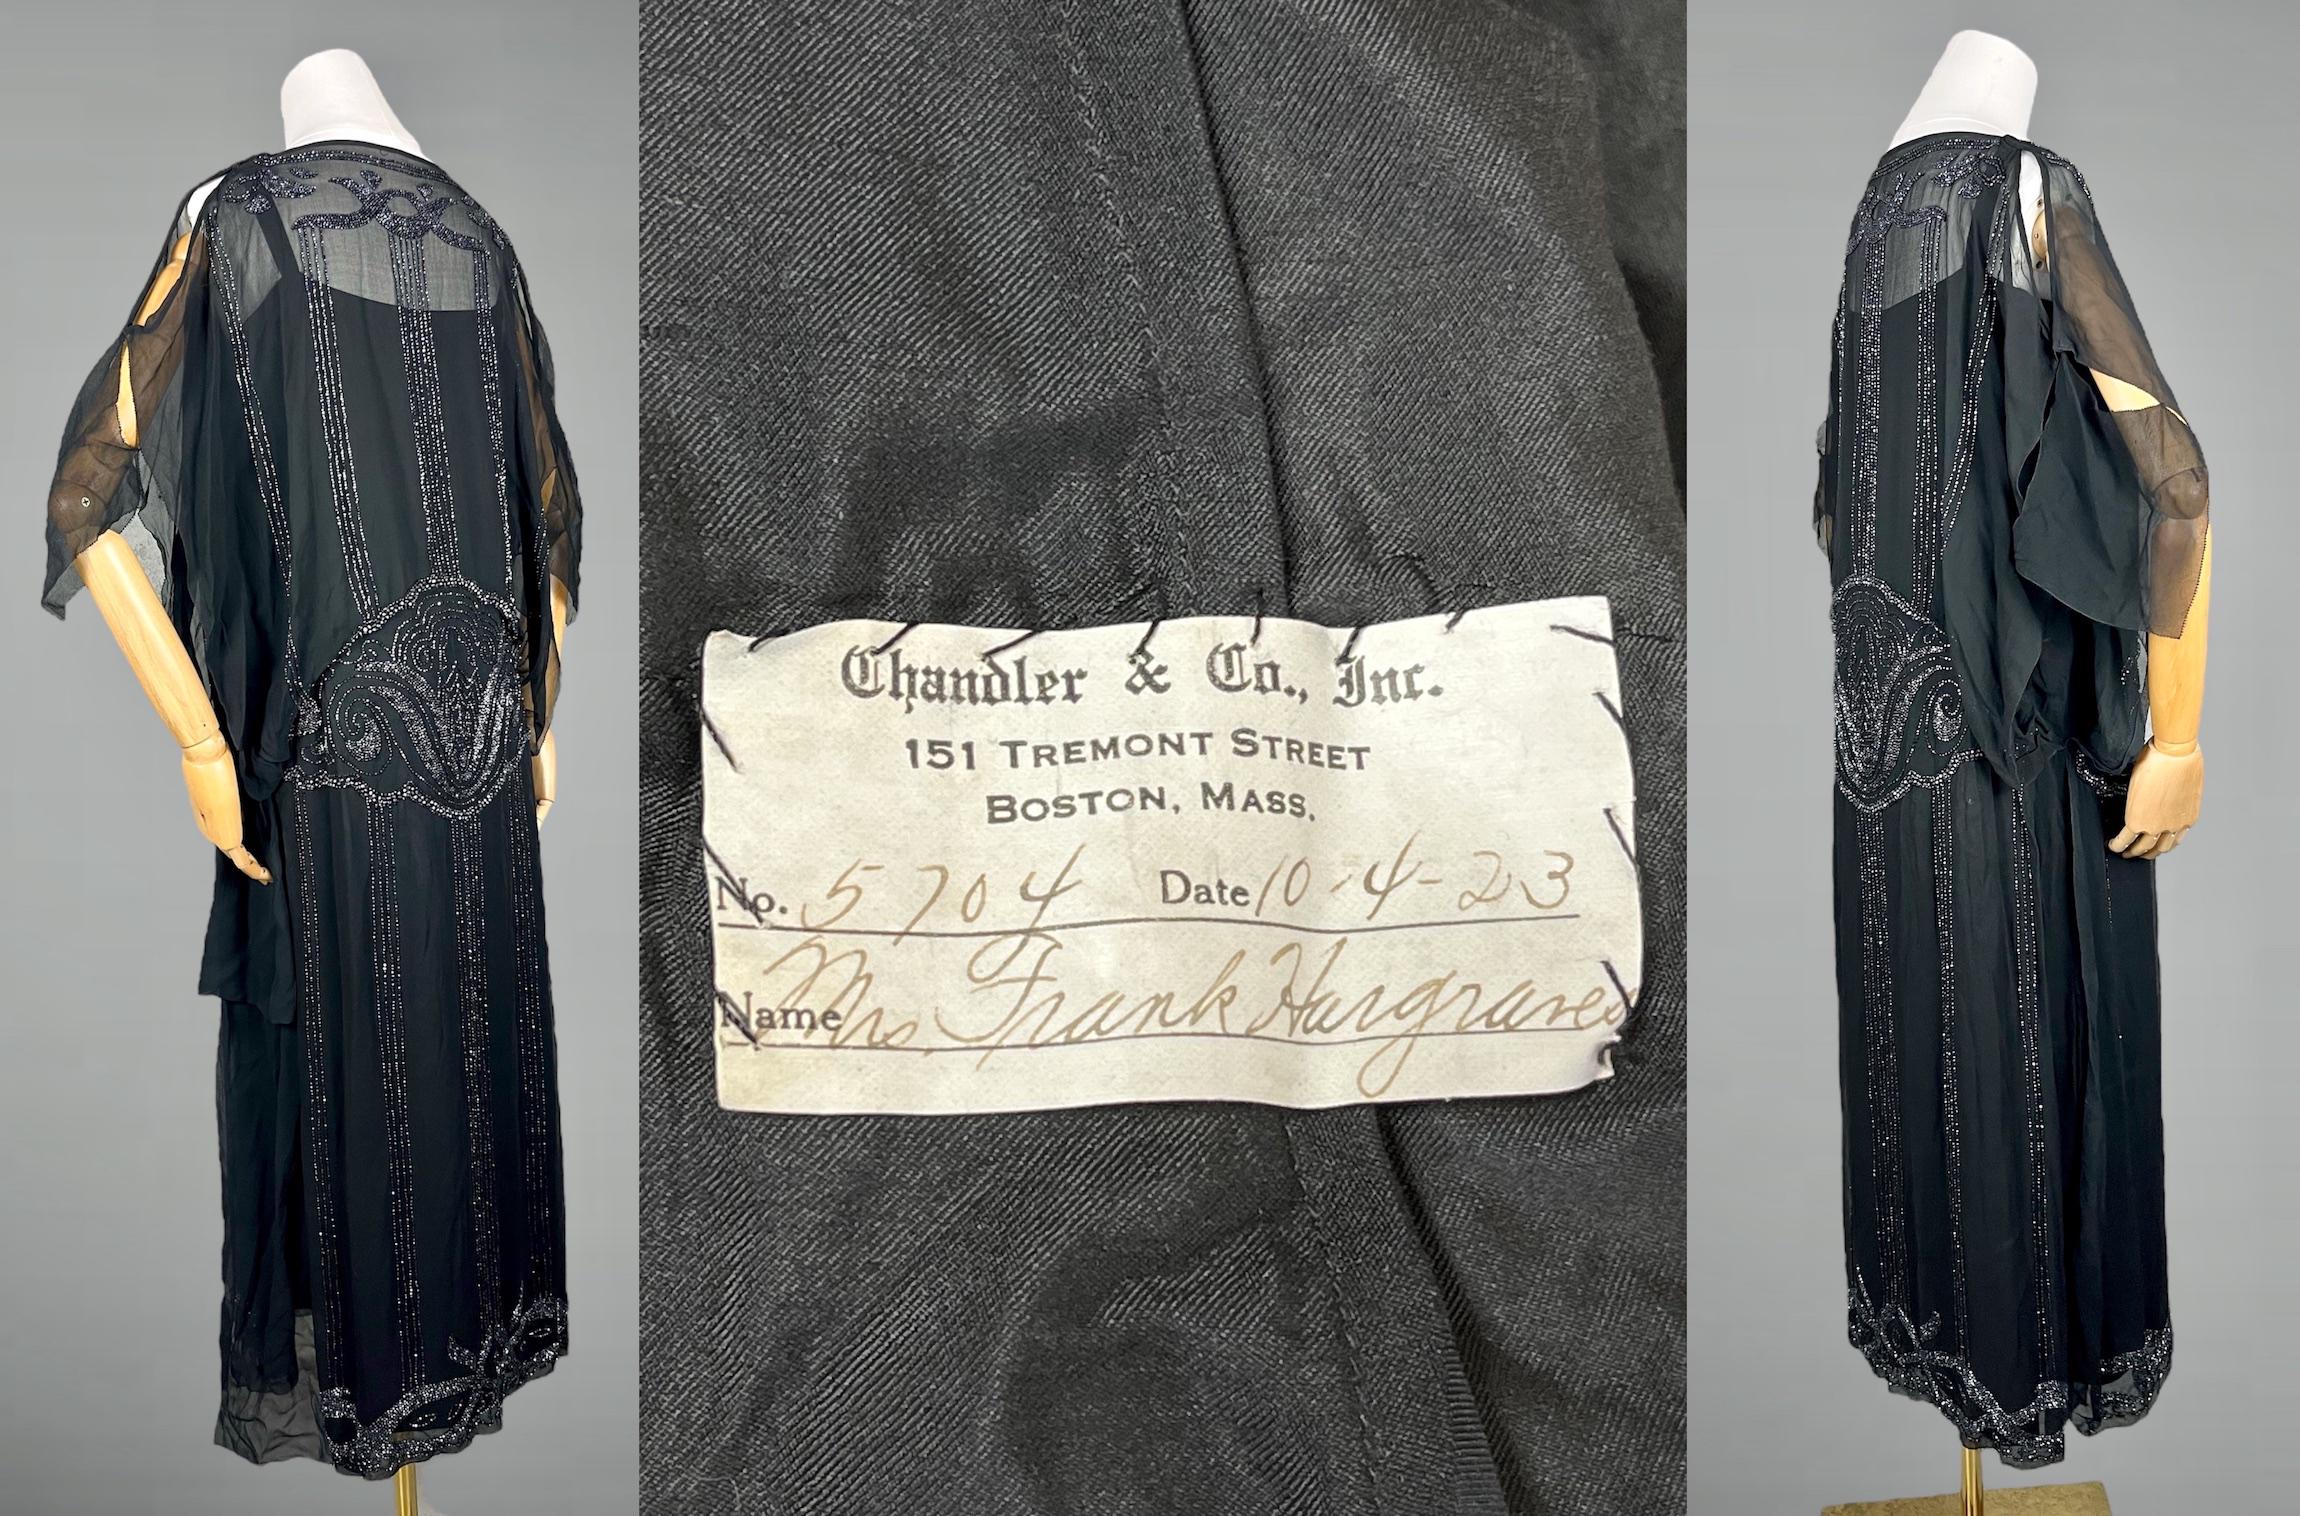 Chandler & Co., Inc.
151 TREMONT STREET
BOSTON, MASS.
No. 5704 Date 10-4-23
Name Mrs. Frank Hargraves